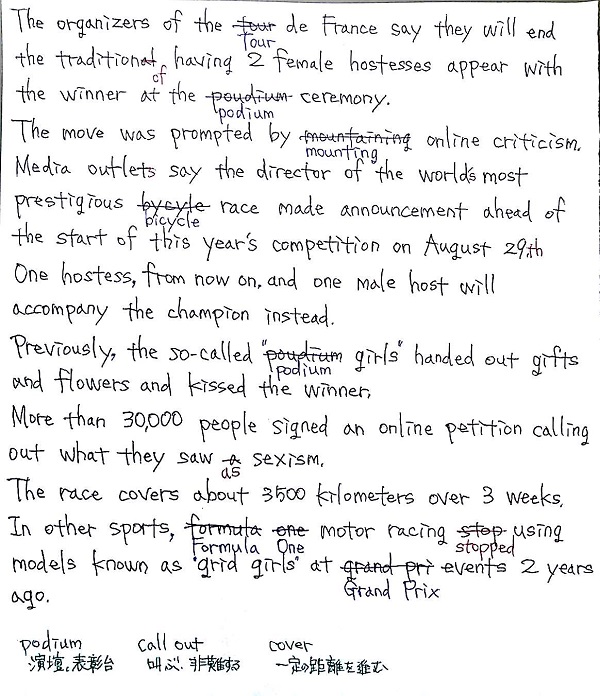 The organizers of the tour de France say they will end
Tour
the traditional, having 2 female hostesses appear with
of
the winner at the poudium ceremony.
podium
The move was prompted by mountaining online criticism.
mounting
Media outlets say the director of the world's most
prestigious bycyle race made announcement ahead of
bicycle
the start of this year's competition on August 29th
One hostess, from now on, and one male host will
accompany the champion instead.
Previously, the so-called "poudium girls" handed out gifts
podium
and flowers and kissed the winner.
More than 30,000 people signed an online petition calling
out what they saw a sexism.
as
The race covers about 3500 kilometers over 3 weeks.
In other sports, formula one motor racing stop using
Formula One stopped
models known as "grid girls" at grand pri events 2 years
Grand Prix
ago.
podium call out cover
演壇、表彰台 叫ぶ、非難する 一定の距離を進む